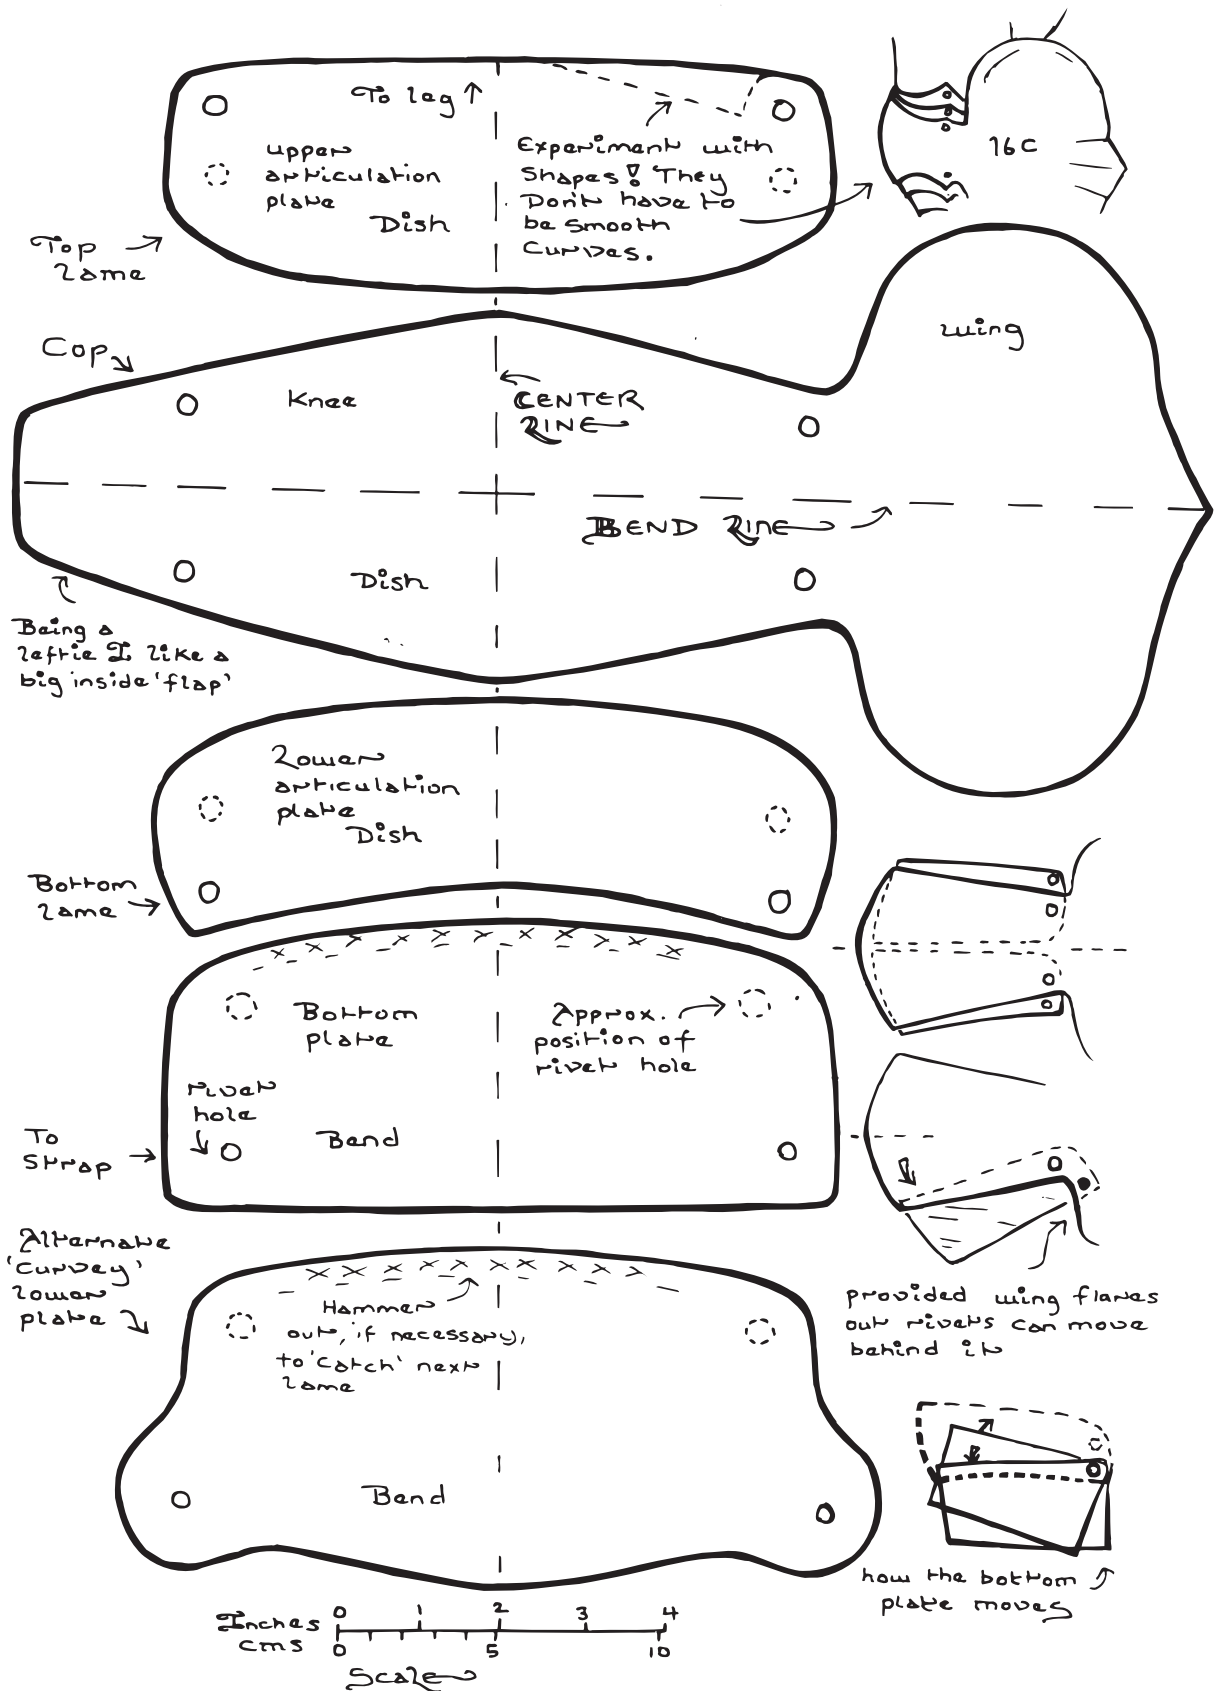 To leg
upper
articulation
plate
Dish
Experiment with
Shapes! They
Don't have to
be smooth
Curves.
16C
Top
Lame
Cop
Knee
CENTER
LINE
wing
BEND LINE
Dish
Being a
leftie I like a
big inside 'flap'
Lower
articulation
plate
Dish
Bottom
Lame
Bottom
plate
Approx.
position of
rivet hole
rivet
hole
Bend
To
Strap
Alternate
'Curvey'
lower
plate
Hammer
out, if necessary,
to 'catch' next
lame
Bend
provided wing flares
out rivets can move
behind it
how the bottom
plate moves
Inches 0 1 2 3 4
cms 0 5 10
Scale